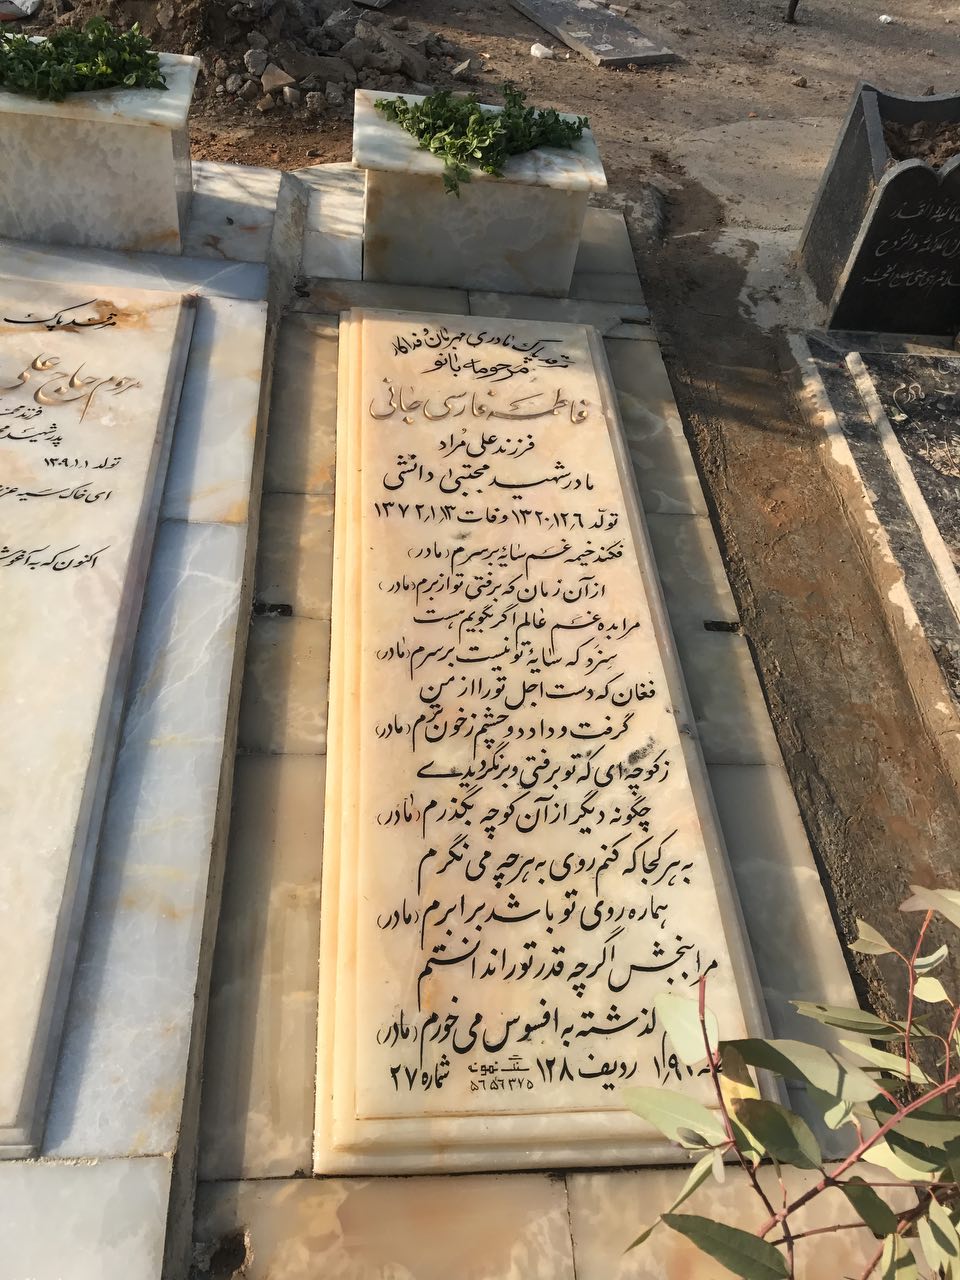 مرقد پاک مادری مهربان و فداکار
مرحومه بانو
فاطمه فارسی جانی
فرزند علی مراد
مادر شهید مجتبی دانشی
تولد ۱۳۲۰،۱۲،۶ وفات ۱۳۷۲،۱،۱۳
فکند خیمه غم سایه بر سرم (مادر)
از آن زمان که برفتی تو از برم (مادر)
مرا بده غم عالم اگر بگویم هست
سزد که سایۀ تو نیست بر سرم (مادر)
فغان که دست اجل تو را از من
گرفت و داد دو چشم ز خون ترم (مادر)
ز کوچه ای که تو برفتی و برنگردیدی
چگونه دیگر از آن کوچه بگذرم (مادر)
به هر کجا که کنم روی به هر چه می نگرم
هماره روی تو باشد برابرم (مادر)
مرا ببخش اگر چه قدر تو را ندانستم
گذشته به افسوس می خورم (مادر)
ردیف ۱۲۸ شماره ۲۷
سنگ نمونه
۵۶۵۶۳۷۵
مرقد پاک
مرحوم حاج علی
پدر شهید
تولد ۱۳۰۹،۱،۱
ای خاک سیه
اکنون که به